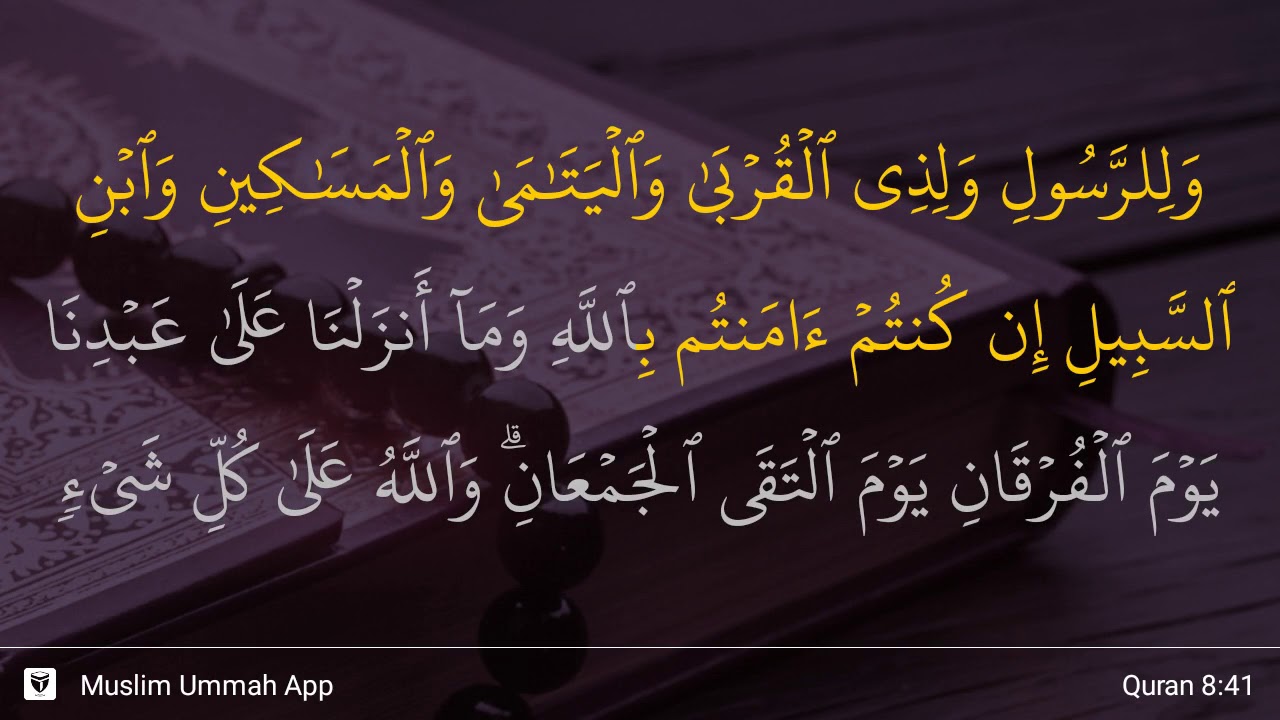 وَلِلرَّسُولِ وَلِذِى ٱلْقُرْبَىٰ وَٱلْيَتَـٰمَىٰ وَٱلْمَسَـٰكِينِ وَٱبْنِ
ٱلسَّبِيلِ إِن كُنتُمْ ءَامَنتُم بِٱللَّهِ وَمَآ أَنزَلْنَا عَلَىٰ عَبْدِنَا
يَوْمَ ٱلْفُرْقَانِ يَوْمَ ٱلْتَقَى ٱلْجَمْعَانِ ۗ وَٱللَّهُ عَلَىٰ كُلِّ شَىْءٍ
Muslim Ummah App
Quran 8:41